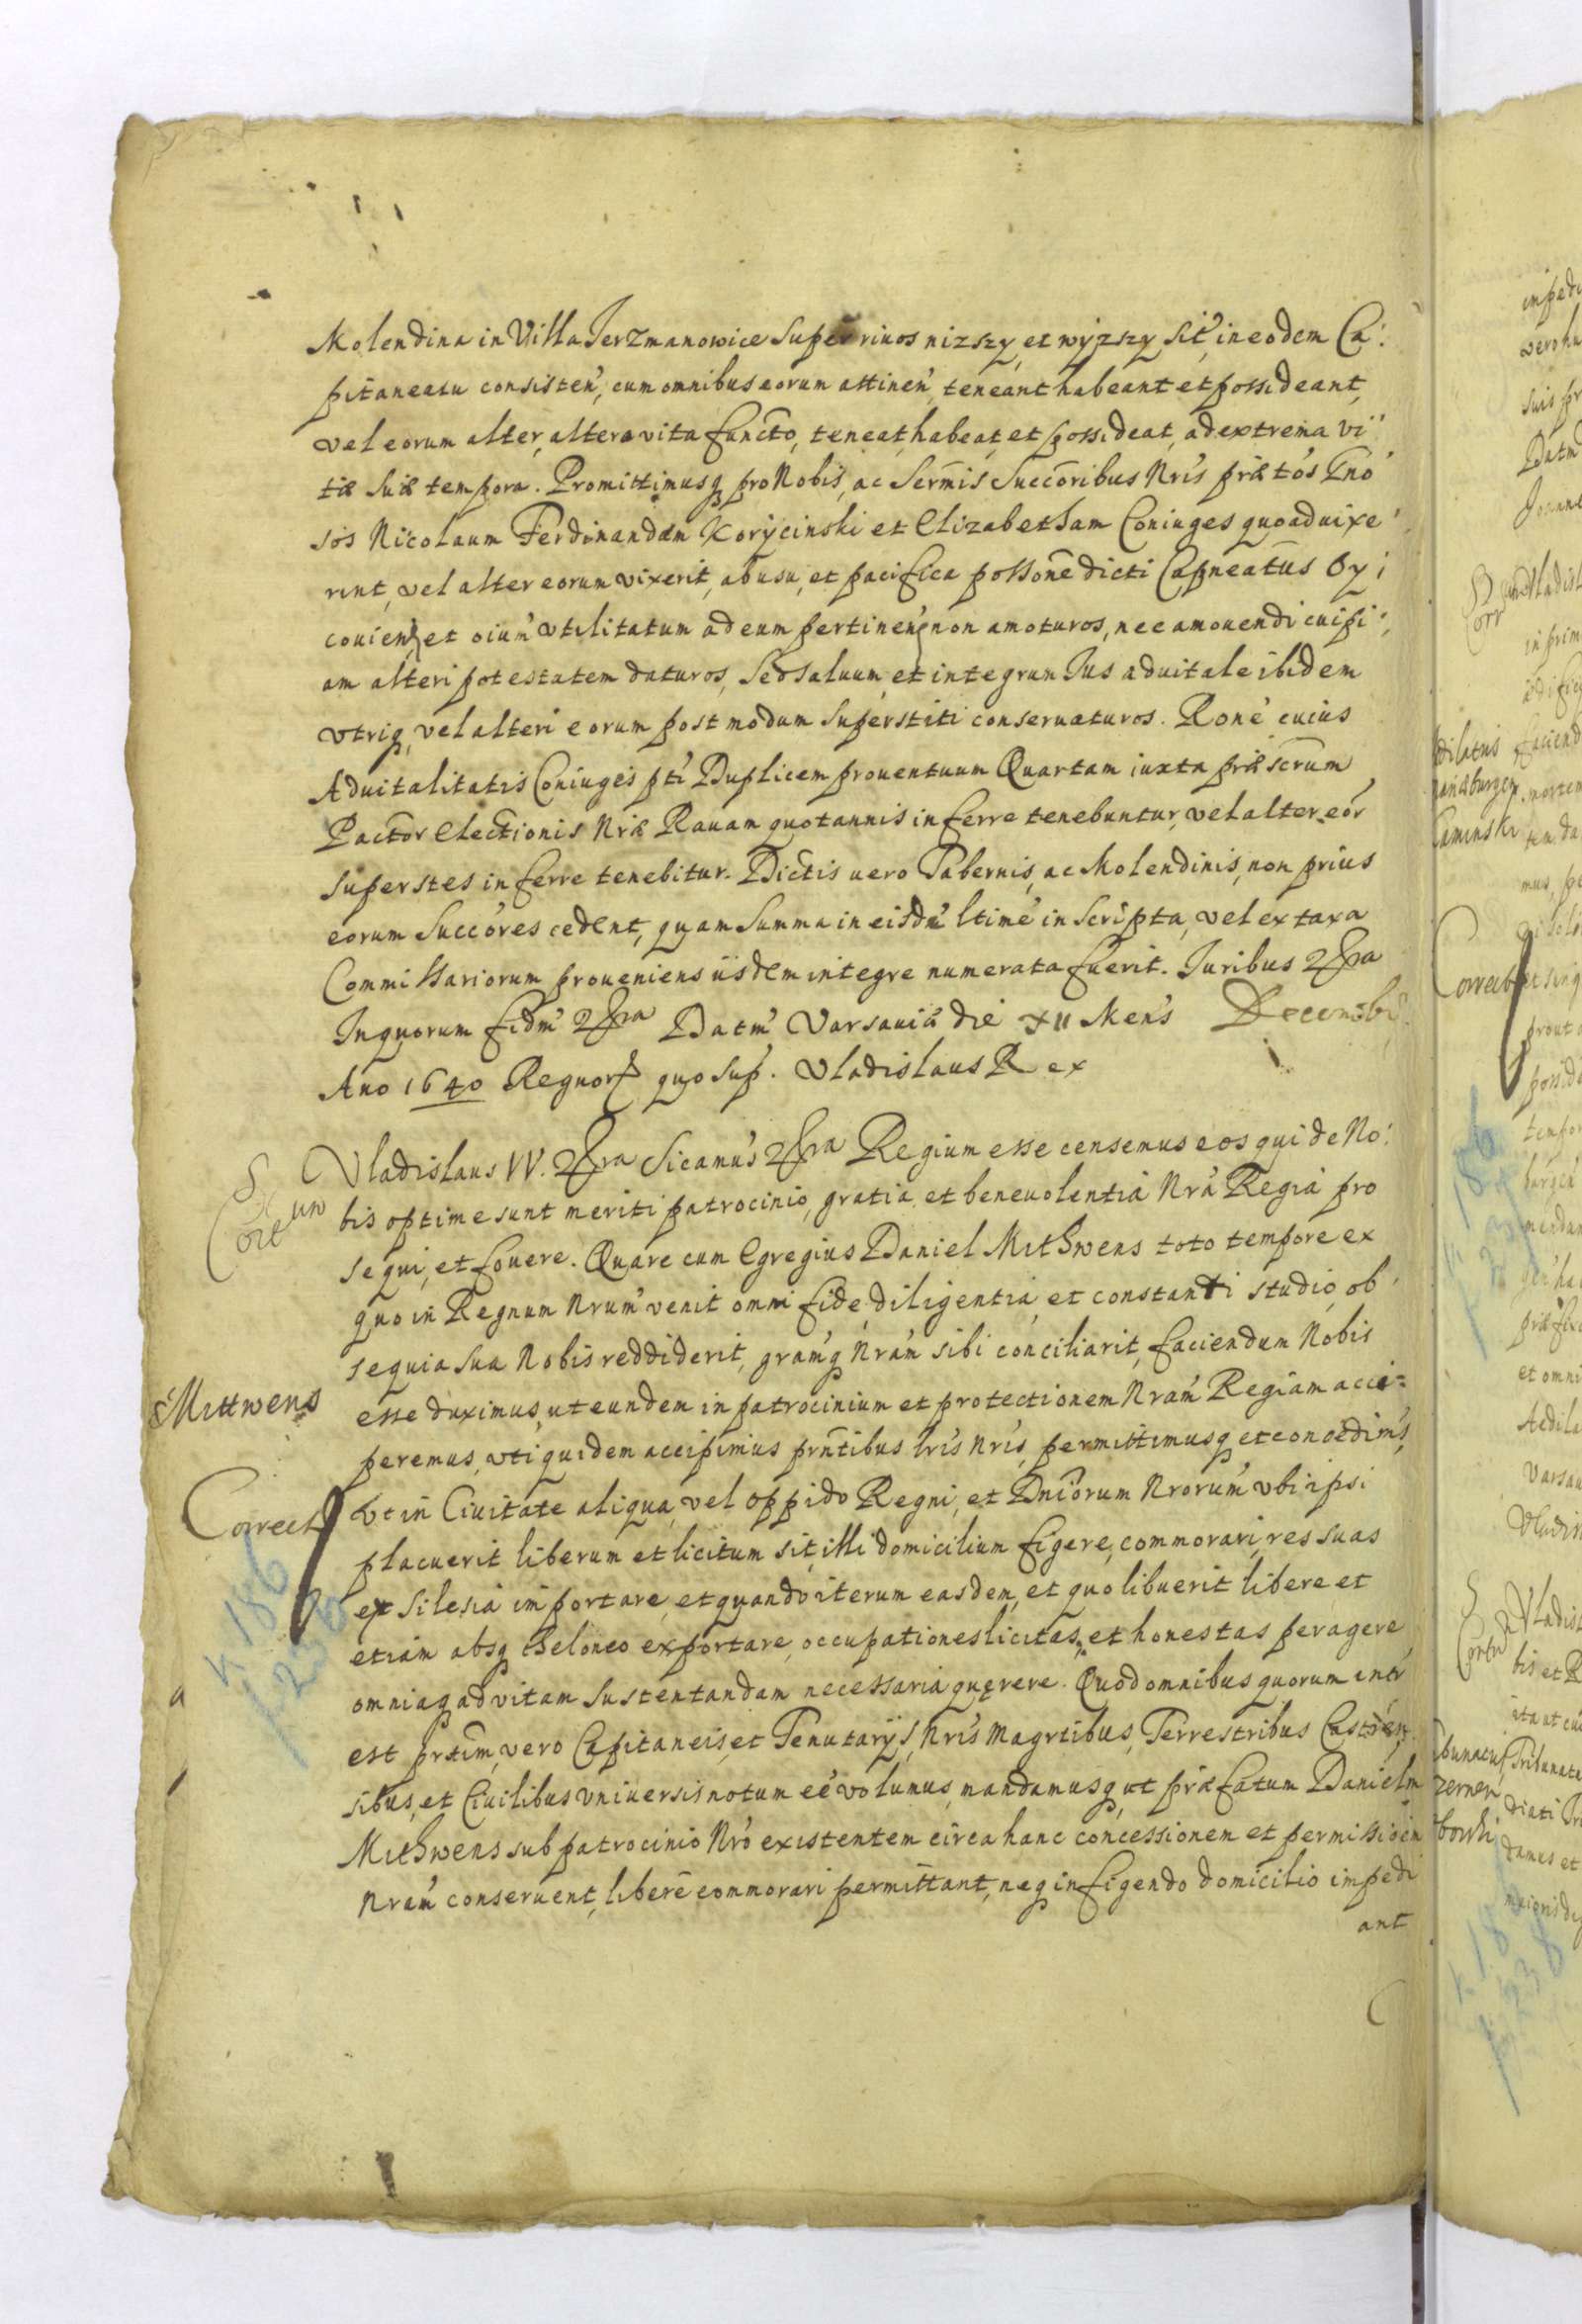 Molendina in Villa Jerzmanowice super rivos nizszy et wyzszy sit' in eodem Ca:
pitaneatu consisten', cum omnibus eorum attinen' teneant habeant et possideant,
vel eorum alter, altero vita functo, teneat, habeat, et possideat, ad extrema vi:
tæ suæ tempora. Promittimusq pro Nobis, ac Sermis Succoribus Nris præ tos Gno
sos Nicolaum Ferdinandum Korycinski et Elizabetham Coniuges quoad vixe
rint, vel alter eorum vixerit, ab usu, et pacifica possone dicti Capneatus Oy:
covien, et oium utilitatum ad eum pertinen' non amoturos, nec amovendi cuipi:
am alteri potestatem daturos, Sed salvum, et integrum Jus advitale ibidem
vtriq, vel alteri eorum postmodum superstiti conservaturos. Rone cuius
Advitalitatis Coniuges pti Duplicem proventuum Quartam iuxta præscrum
Pactor Electionis Nræ Ravam quotannis inferre tenebuntur, vel alter eor
superstes inferre tenebitur. Dictis vero Tabernis, ac Molendinis, non prius
eorum Succores cedent, quam summa in eisdm ltime inscripta, vel ex taxa
Commissariorum proveniens iisdem integre numerata fuerit. Juribus
In quorum fidm Datm Varsaviæ die XII Mens Decembr
Ano 1640 Regnor quo sup. Vladislaus Rex
Vladislaus IV. Sicamus Regium esse censemus eos qui de No:
bis optime sunt meriti patrocinio, gratia et benevolentia Nra Regia pro
sequi, et fovere. Quare cum Egregius Daniel Mithwens toto tempore ex
quo in Regnum Nrum venit omni fide, diligentia et constanti studio, ob
sequia sua Nobis reddiderit, gramq Nram sibi conciliarit, faciendum Nobis
Mittwens
esse duximus, ut eundem in patrocinium et protectionem Nram Regiam acci=
peremus, uti quidem accipimus prntibus lris Nris, permittimusq et concedims,
Correct
Vt in Civitate aliqua, vel oppido Regni, et Dniorum Nrorum vbi ipsi
placuerit liberum et licitum sit, illi domicilium figere, commorari, res suas
k 186
ex Silesia importare, et quando iterum easdem, et quo libuerit libere et
etiam absq theloneo exportare, occupationes licitas, et honestas peragere
omniaq ad vitam sustentandam necessaria quęrere. Quod omnibus quorum intr
est prtim, vero Capitaneis, et Tenutarijs, Nris Magrtibus, Terrestribus Castren
sibus, et Civilibus vniversis notum ee volumus, mandamusq, ut præfatum Danielm
Mithwens sub patrocinio Nro existentem circa hanc concessionem et permissioem
Nram conservent, libere commorari permittant, neq in figendo domicilio impedi
ant